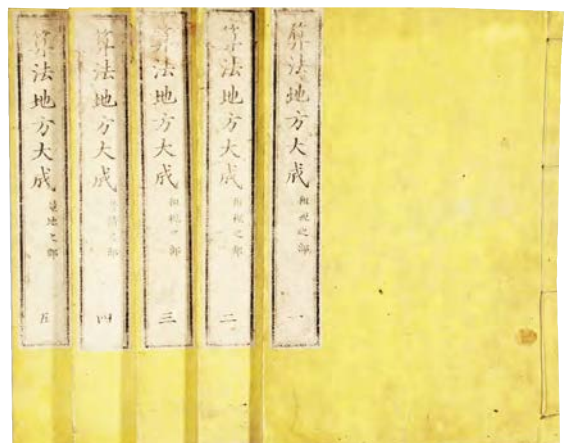 算法地方大成 租税之部 一
算法地方大成 租税之部 二
算法地方大成 租税之部 三
算法地方大成 之部 四
算法地方大成 量地之部 五